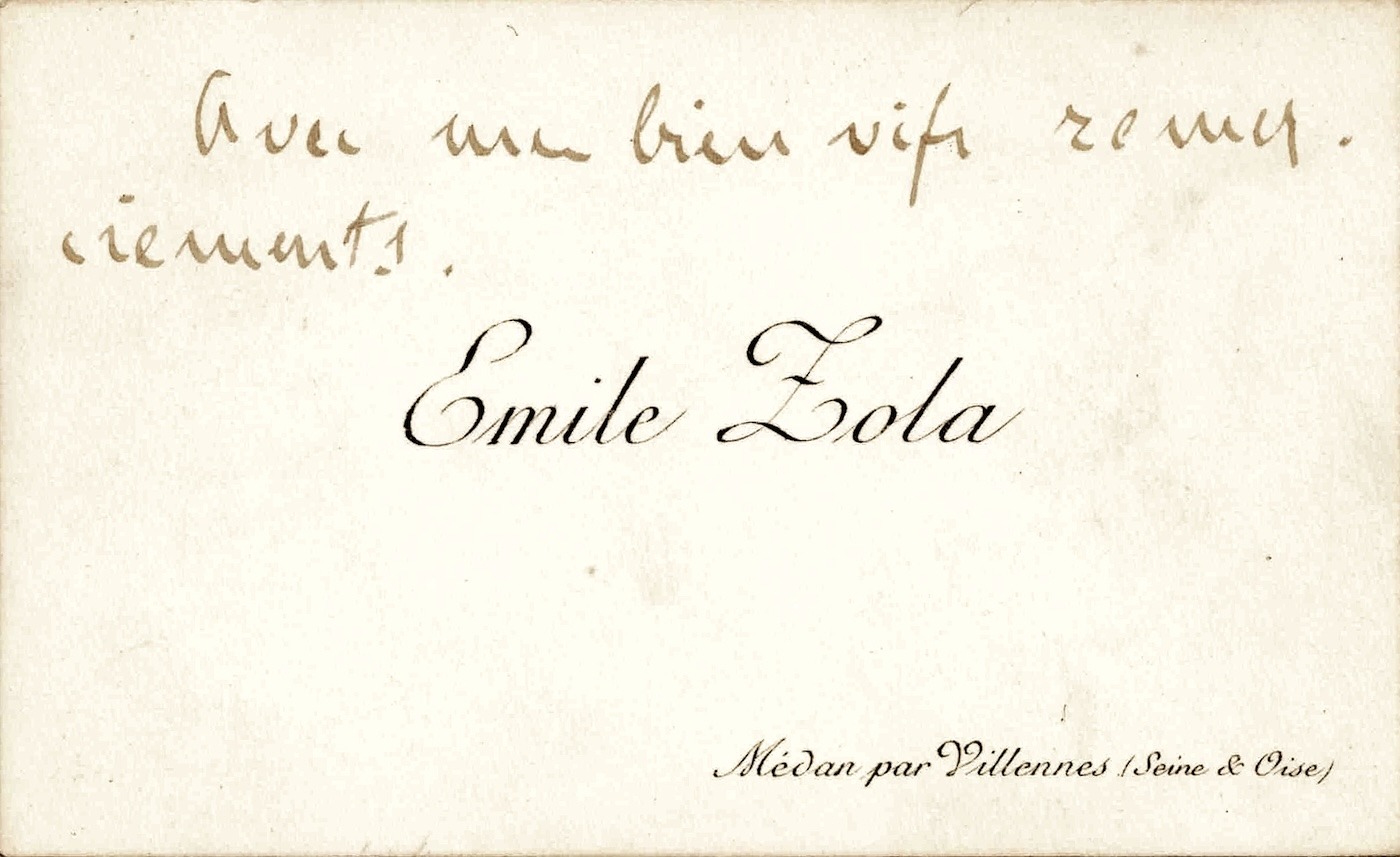 Avec mes bien vifs remer-
ciements.
Emile Zola
Médan par Villennes (Seine & Oise)